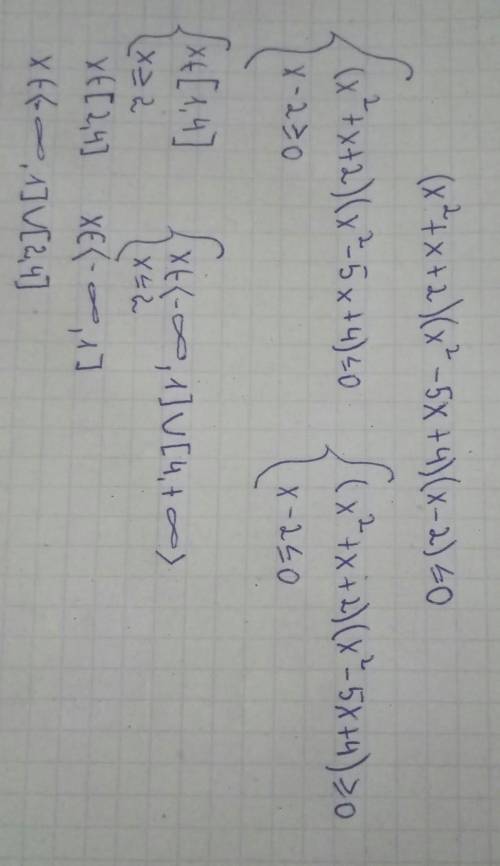 (x²+x+2)(x²-5x+4)(x-2)≤0
{(x²+x+2)(x²-5x+4)≤0
x-2≥0
{(x²+x+2)(x²-5x+4)≥0
x-2≤0
{x∈[1,4]
x≥2
{x∈⟨-∞,1]∪[4,+∞⟩
x≤2
x∈[2,4]
x∈⟨-∞,1]
x∈⟨-∞,1]∪[2,4]